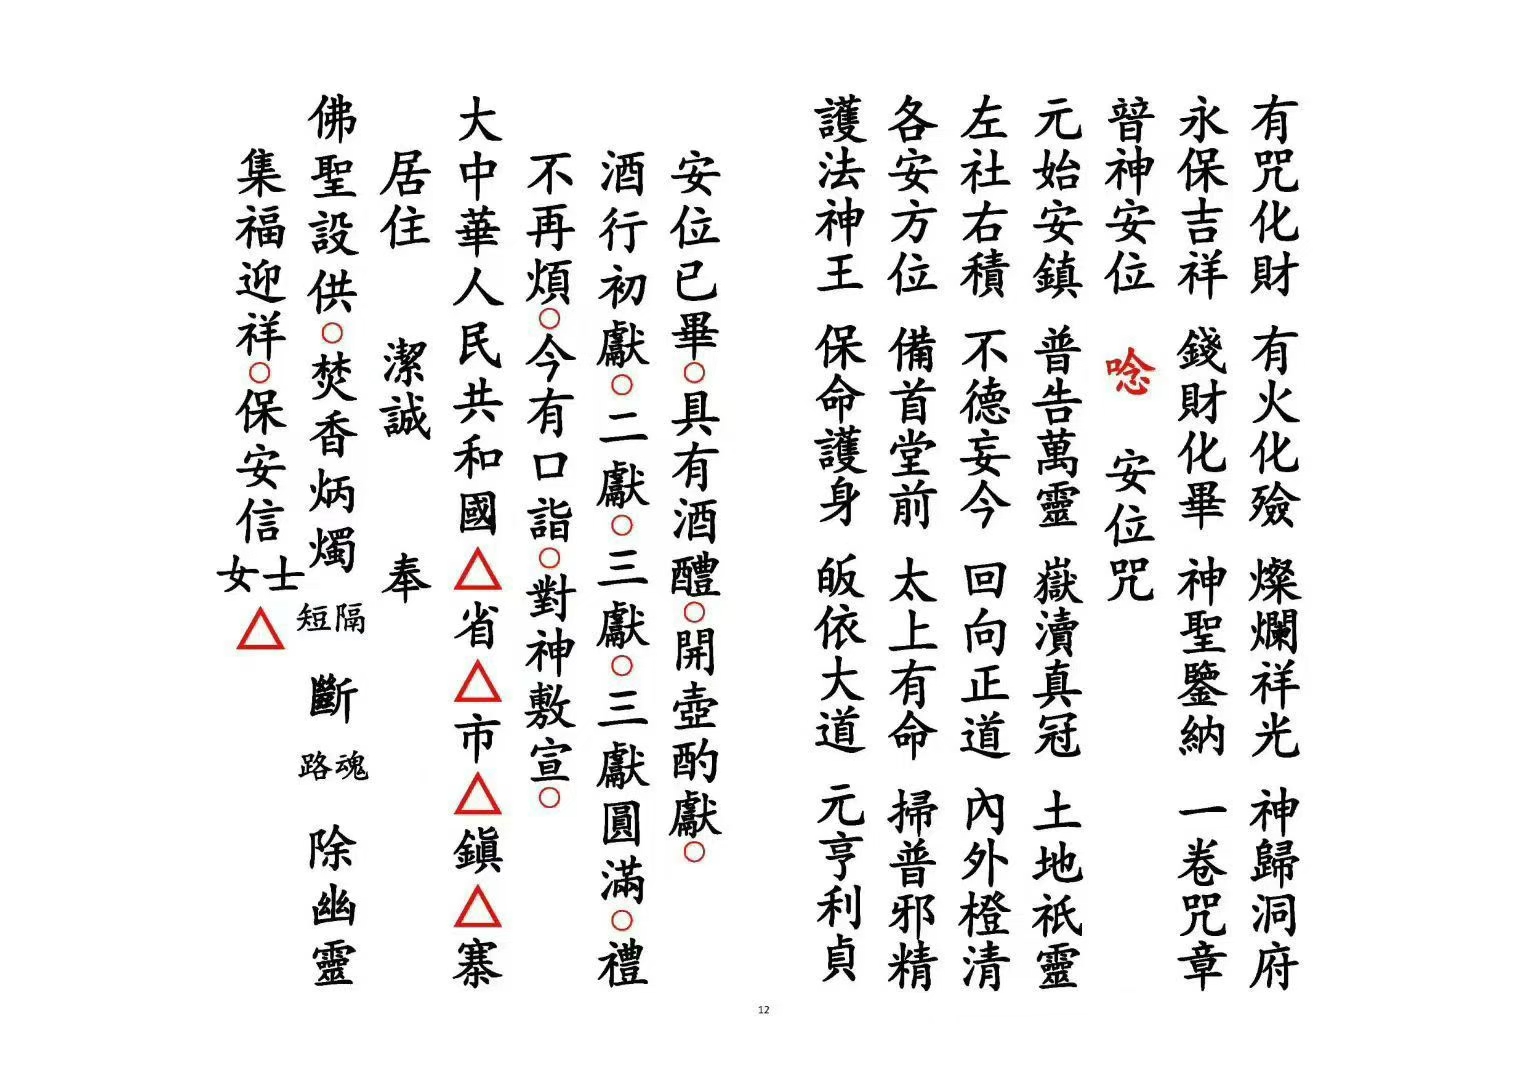 有咒化財 有火化殮 燦爛祥光 神歸洞府
永保吉祥 錢財化畢 神聖鑒納 一卷咒章
暜神安位 唸 安位咒
元始安鎮 普告萬靈 嶽瀆真冠 土地祇靈
左社右積 不德妄今 回向正道 內外橙清
各安方位 備首堂前 太上有命 掃普邪精
護法神王 保命護身 皈依大道 元亨利貞
安位已畢○具有酒醴○開壺酌獻○
酒行初獻○二獻○三獻○三獻圓滿○禮
不再煩○今有口詣○對神敷宣○
大中華人民共和國△省△市△鎭△寨
居住 潔誠 奉
佛聖設供○焚香炳燭 隔短 斷 魂路 除幽靈
集福迎祥○保安信士女△
12